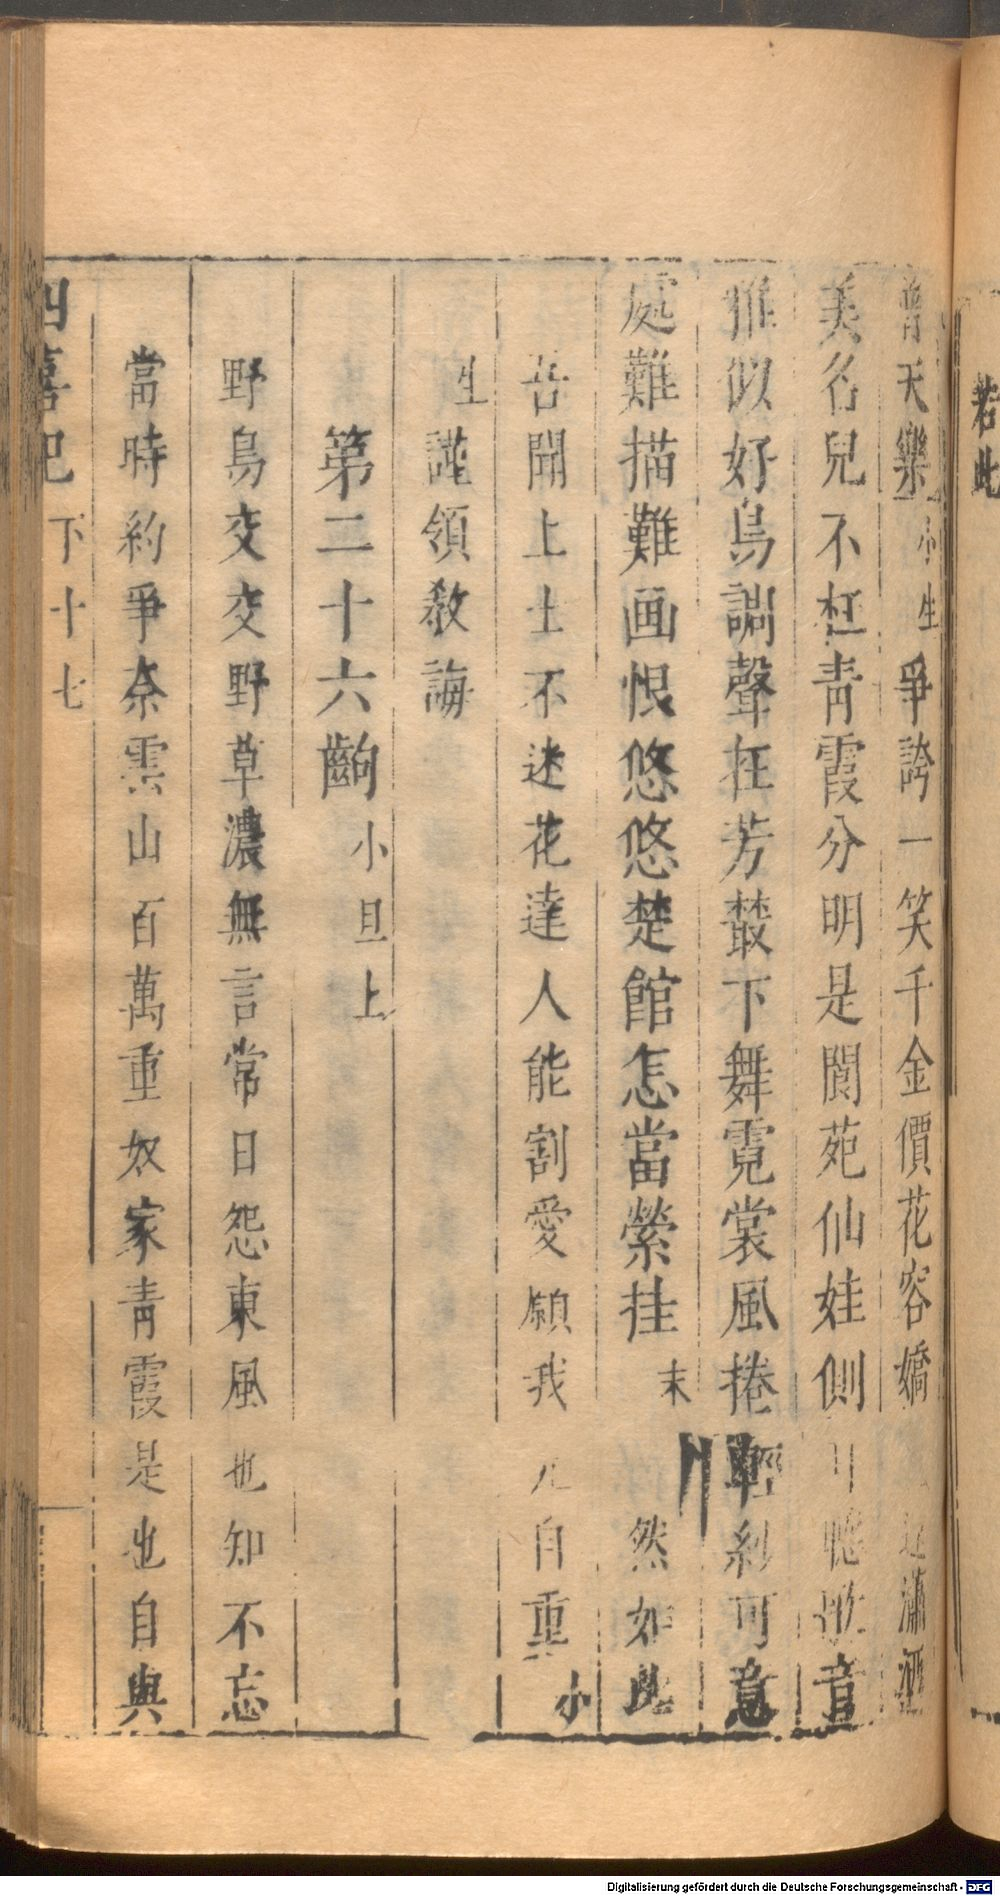 若此
普天樂 小生 爭誇一笑千金價花容嬌 瀟洒
美名兒不枉青霞分明是閬苑仙娃側 聰 意
雅似好鳥調聲在芳叢下舞霓裳風捲輕紗可意
處難描難画恨悠悠楚館怎當縈挂 末 然如此
吾聞上士不迷花達人能割愛願我 兄自重 小
生 謹領教誨
第二十六齣 小旦上
野鳥交交野草濃無言常日怨東風 也知不忘
當時約爭奈雲山百萬重奴家青霞是也自與
四喜記 下 十七
Digitalisierung gefördert durch die Deutsche Forschungsgemeinschaft - DFG